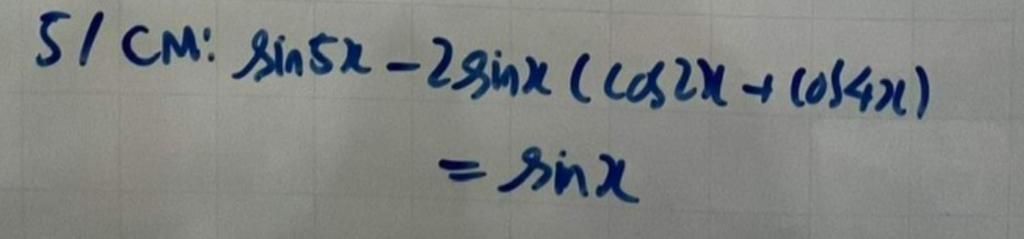 5/ CM: sin5x - 2sinx (cos2x + cos4x)
= sinx